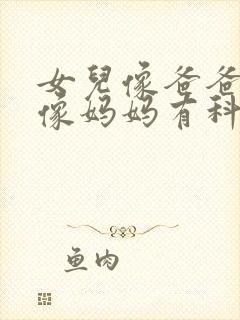 女兒像爸爸
像妈妈有科
鱼肉